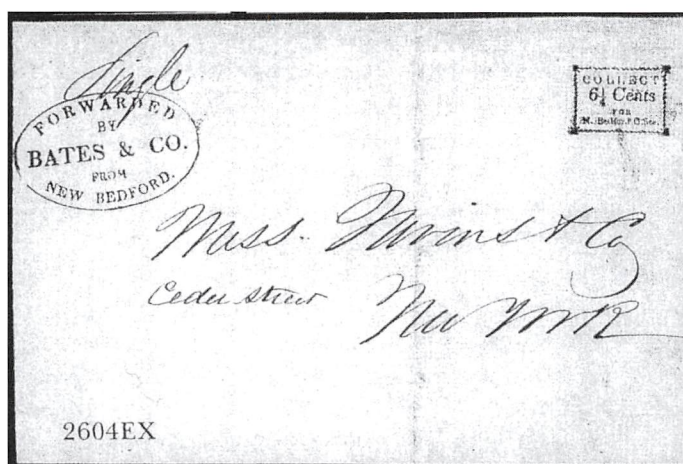 Single
FORWARDED
BY
BATES & CO.
FROM
NEW BEDFORD.
COLLECT
6¼ Cents
FOR
Mess. Nevins & Co
Cedar Street
New York
2604EX